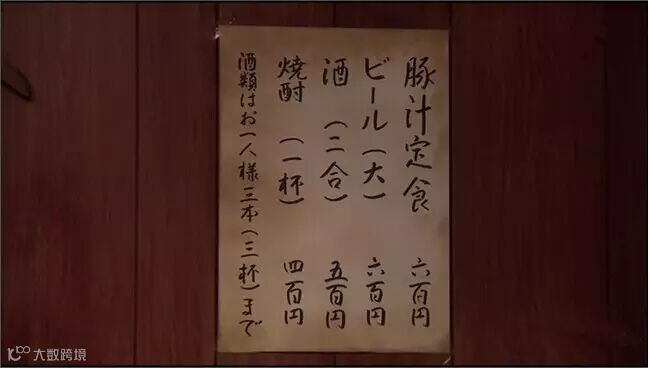 豚汁定食 六百円
ビール（大） 六百円
酒（二合） 五百円
焼酎（一杯） 四百円
酒類はお一人様三本（三杯）まで
大数跨境